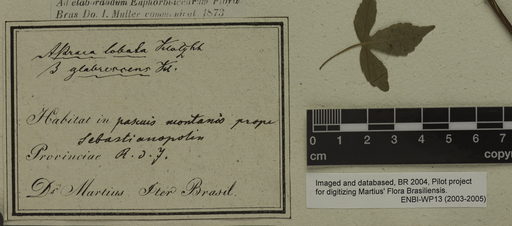 Ad elaborandum Euphorbiacearum Flora
Bras Do. I. Müller commu nicat. 1873
lobata Klotzsch
β glabrescens Kl.
Habitat in pascuis montanis prope
Sebastianopolin
Provinciae R. d. J.
Dr Martius Iter Brasil.
0 1 2 3 4 5
cm
copy
Imaged and databased, BR 2004, Pilot project
for digitizing Martius' Flora Brasiliensis.
ENBI-WP13 (2003-2005)